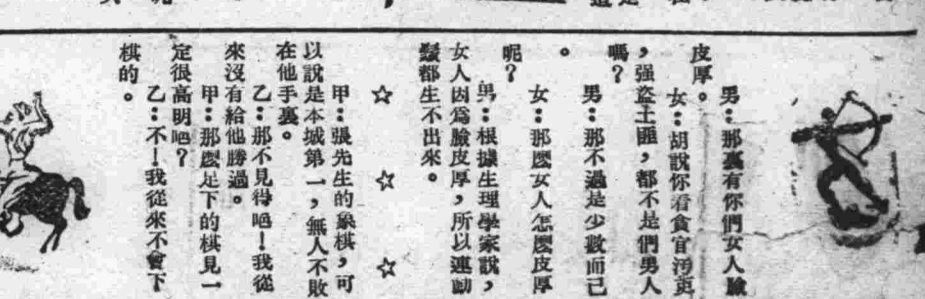 男：那裏有你們女人臉
皮厚。
女：胡說你看貪官汚吏
，强盜土匪，都不是們男人
嗎？
男：那不過是少數而已
。
女：那麽女人怎麽皮厚
呢？
男：根據生理學家說，
女人因爲臉皮厚，所以連動
鬚都生不出來。
☆ ☆ ☆
甲：張先生的象棋，可
以說是本城第一，無人不敗
在他手裏。
乙：那不見得吧！我從
來沒有給他勝過。
甲：那麽足下的棋見一
定很高明吧？
乙：不！我從來不會下
棋的。